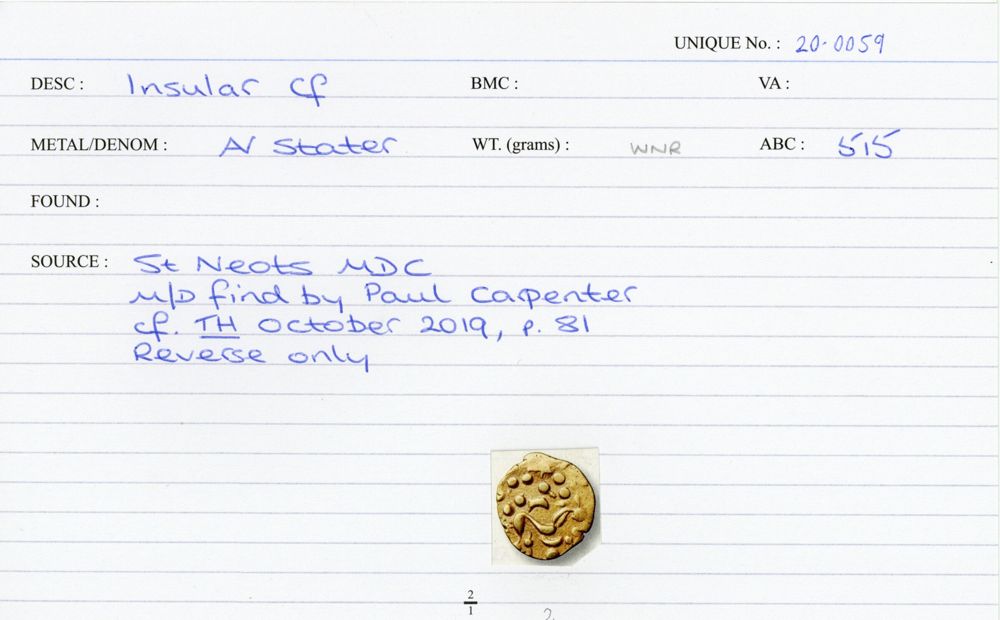 UNIQUE No. : 20-0059
DESC : Insular cf BMC : VA :
METAL/DENOM : AV Stater WT. (grams) : WNR ABC : 515
FOUND :
SOURCE : St Neots MDC
M/D find by Paul Carpenter
cf. TH October 2019, p. 81
Reverse only
2/1 2